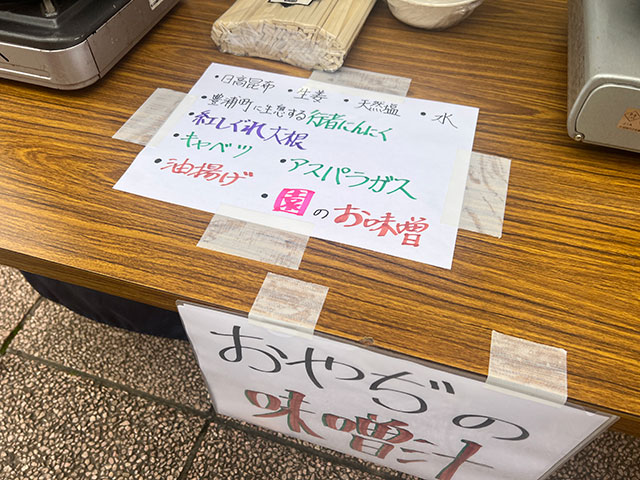 ・日高昆布 ・生姜 ・天然塩 ・水
・豊浦町に生息する行者にんにく
・紅しぐれ大根
・キャベツ ・アスパラガス
・油揚げ
・園のお味噌
おやぢの
味噌汁